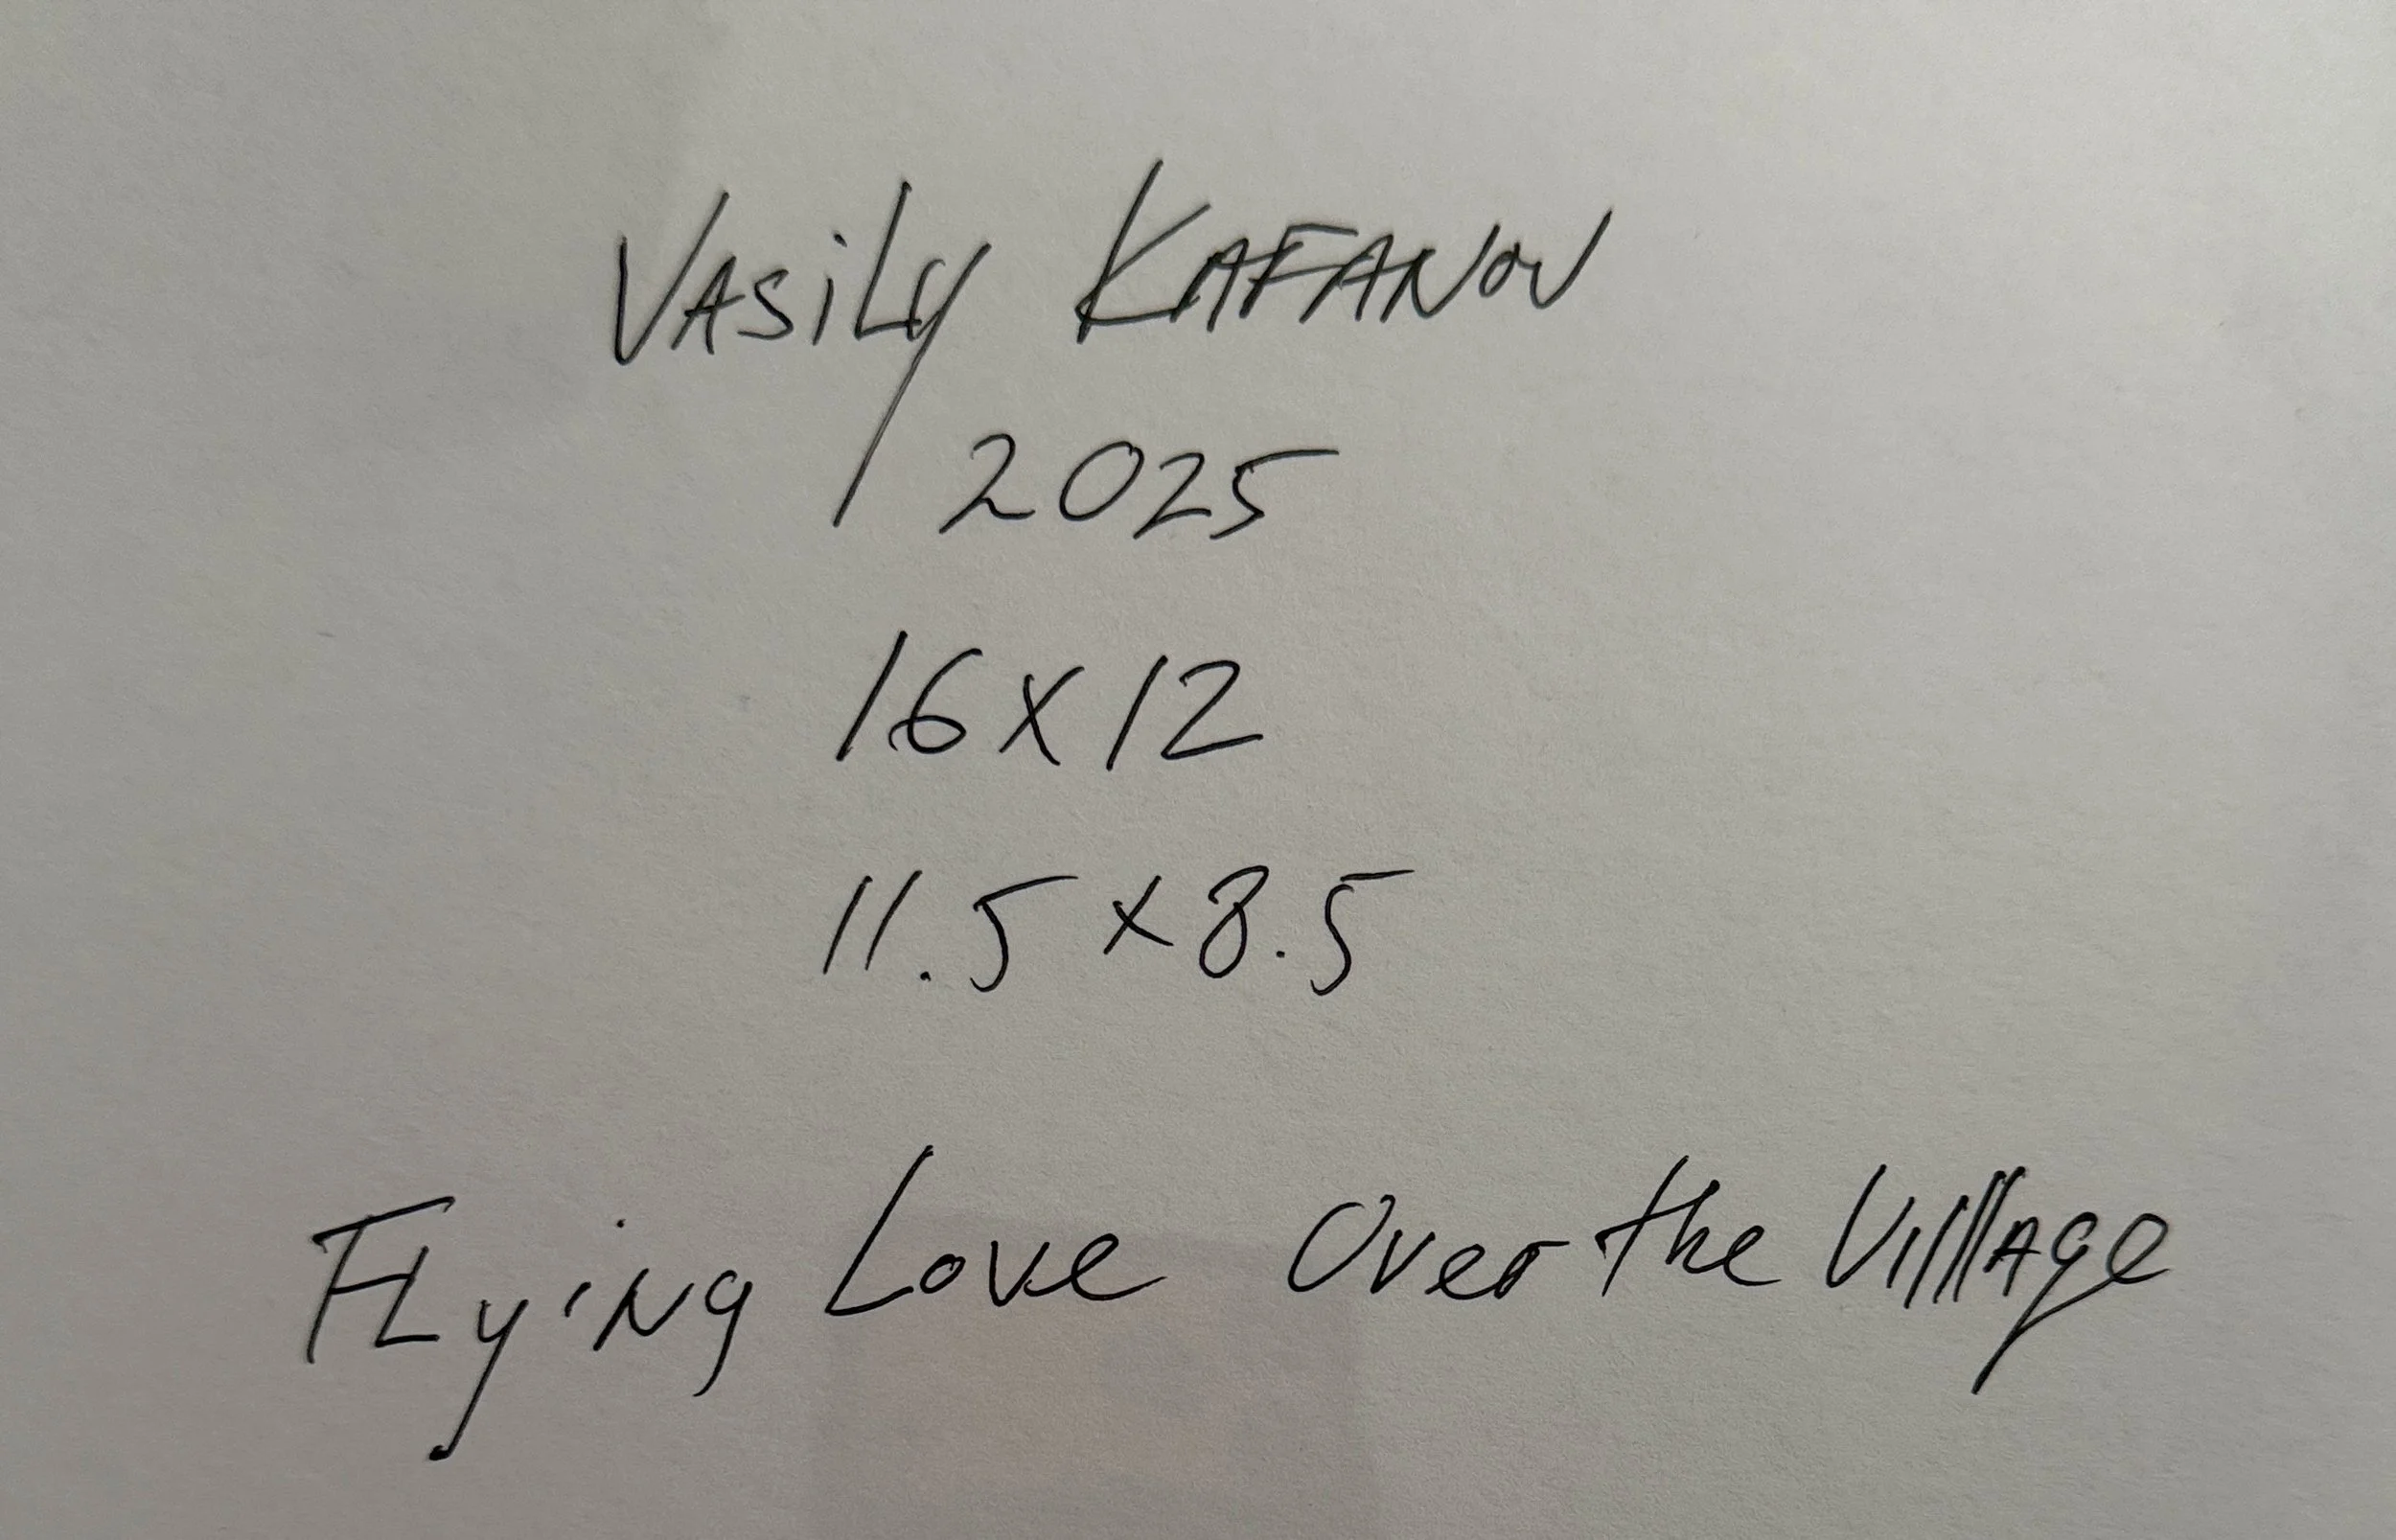 Vasily Kafanov
2025
16x12
11.5x8.5
Flying Love Over the Village